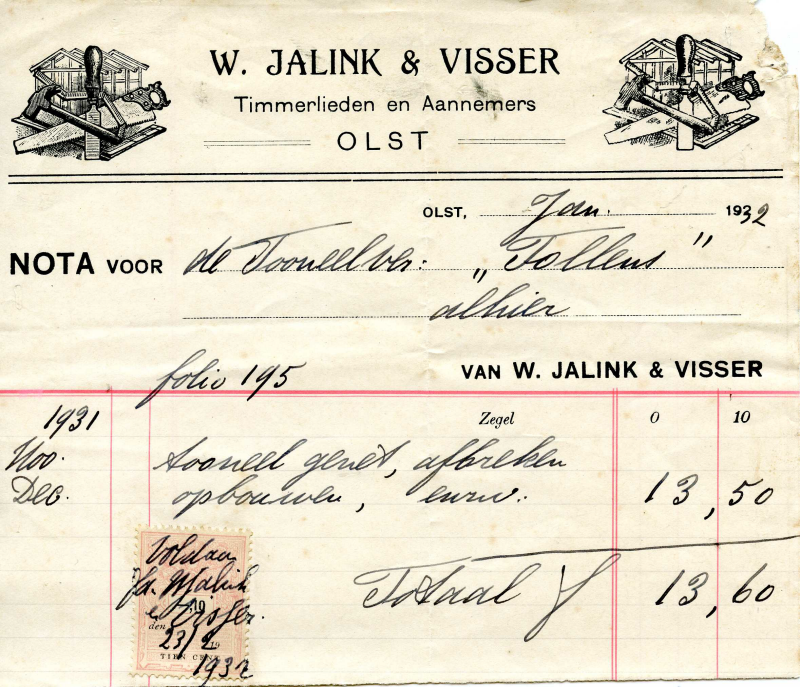 W. JALINK & VISSER
Timmerlieden en Aannemers
OLST
OLST, Jan. 1932
NOTA VOOR de Tooneelver: „Tollens"
alhier
folio 195
VAN W. JALINK & VISSER
1931 Zegel 0 10
Nov. tooneel gezet, afbreken
Dec. opbouwen, enzv.: 13,50
Totaal f 13,60
Voldaan
Visser.
23/2 19
TIEN CENT
1932